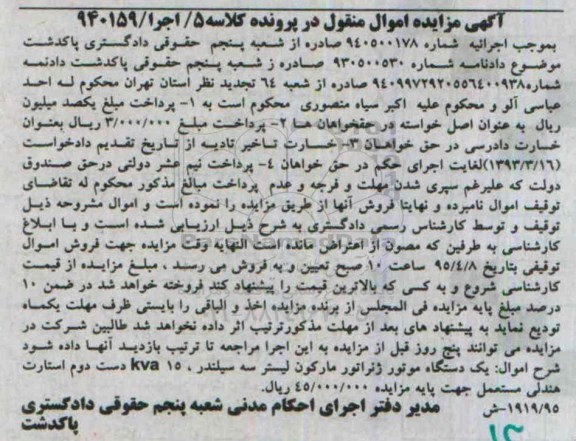 آگهی مزایده اموال منقول در پرونده کلاسه۵/ اجرا/۹۴۰۱۵۹
بموجب اجرائیه شماره ۹۴۰۵۰۰۱۷۸ صادره از شعبه پنجم حقوقی دادگستری پاکدشت
موضوع دادنامه شماره ۹۳۰۵۰۰۵۳۰ صادره ز شعبه پنجم حقوقی پاکدشت دادنمه
شماره۹۴۰۹۹۷۲۹۲۰۵۵۶۴۰۰۹۳۸ صادره از شعبه ۶۴ تجدید نظر استان تهران محکوم له احد
عباسی آلر و محکوم علیه اکبر سیاه منصوری محکوم است به ۱- پرداخت مبلغ یکصد میلیون
ریال به عنوان اصل خواسته در حقخواهان ها ۲- پرداخت مبلغ ۳/۰۰۰/۰۰۰ ریال بعنوان
خسارت دادرسی در حق خواهان ۳- خسارت تاخیر تادیه از تاریخ تقدیم دادخواست
(۱۳۹۳/۳/۱۶)لغایت اجرای حکم در حق خواهان ۴- پرداخت نیم عشر دولتی درحق صندوق
دولت که علیرغم سپری شدن مهلت و فرجه و عدم پرداخت مبالغ مذکور محکوم له تقاضای
توقیف اموال نامبرده و نهایتا فروش آنها از طریق مزایده را نموده است و اموال مشروحه ذیل
توقیف و توسط کارشناس رسمی دادگستری به شرح ذیل ارزیابی شده است و با ابلاغ
کارشناسی به طرفین که مصون از اعتراض مانده است النهایه وقت مزایده جهت فروش اموال
توقیفی بتاریخ ۹۵/۴/۸ ساعت ۱۰ صبح تعیین و به فروش می رسند ، مبلغ مزایده از قیمت
کارشناسی شروع و به کسی که بالاترین قیمت را پیشنهاد کند فروخته خواهد شد در ضمن ۱۰
درصد مبلغ پایه مزایده فی المجلس از برنده مزایده اخذ و الباقی را بایستی ظرف مهلت یکماه
تودیع نماید به پیشنهاد های بعد از مهلت مذکورترتیب اثر داده نخواهد شد طالبین شرکت در
مزایده می توانند پنج روز قبل از مزایده به این اجرا مراجعه تا ترتیب بازدید آنها داده شود
شرح اموال: یک دستگاه موتور ژنراتور مارکون لیستر سه سیلندر ، ۱۵ kva دست دوم استارت
هندلی مستعمل جهت پایه مزایده ۴۵/۰۰۰/۰۰۰ ریال.
۱۹۱۹/۹۵-ش مدیر دفتر اجرای احکام مدنی شعبه پنجم حقوقی دادگستری
پاکدشت